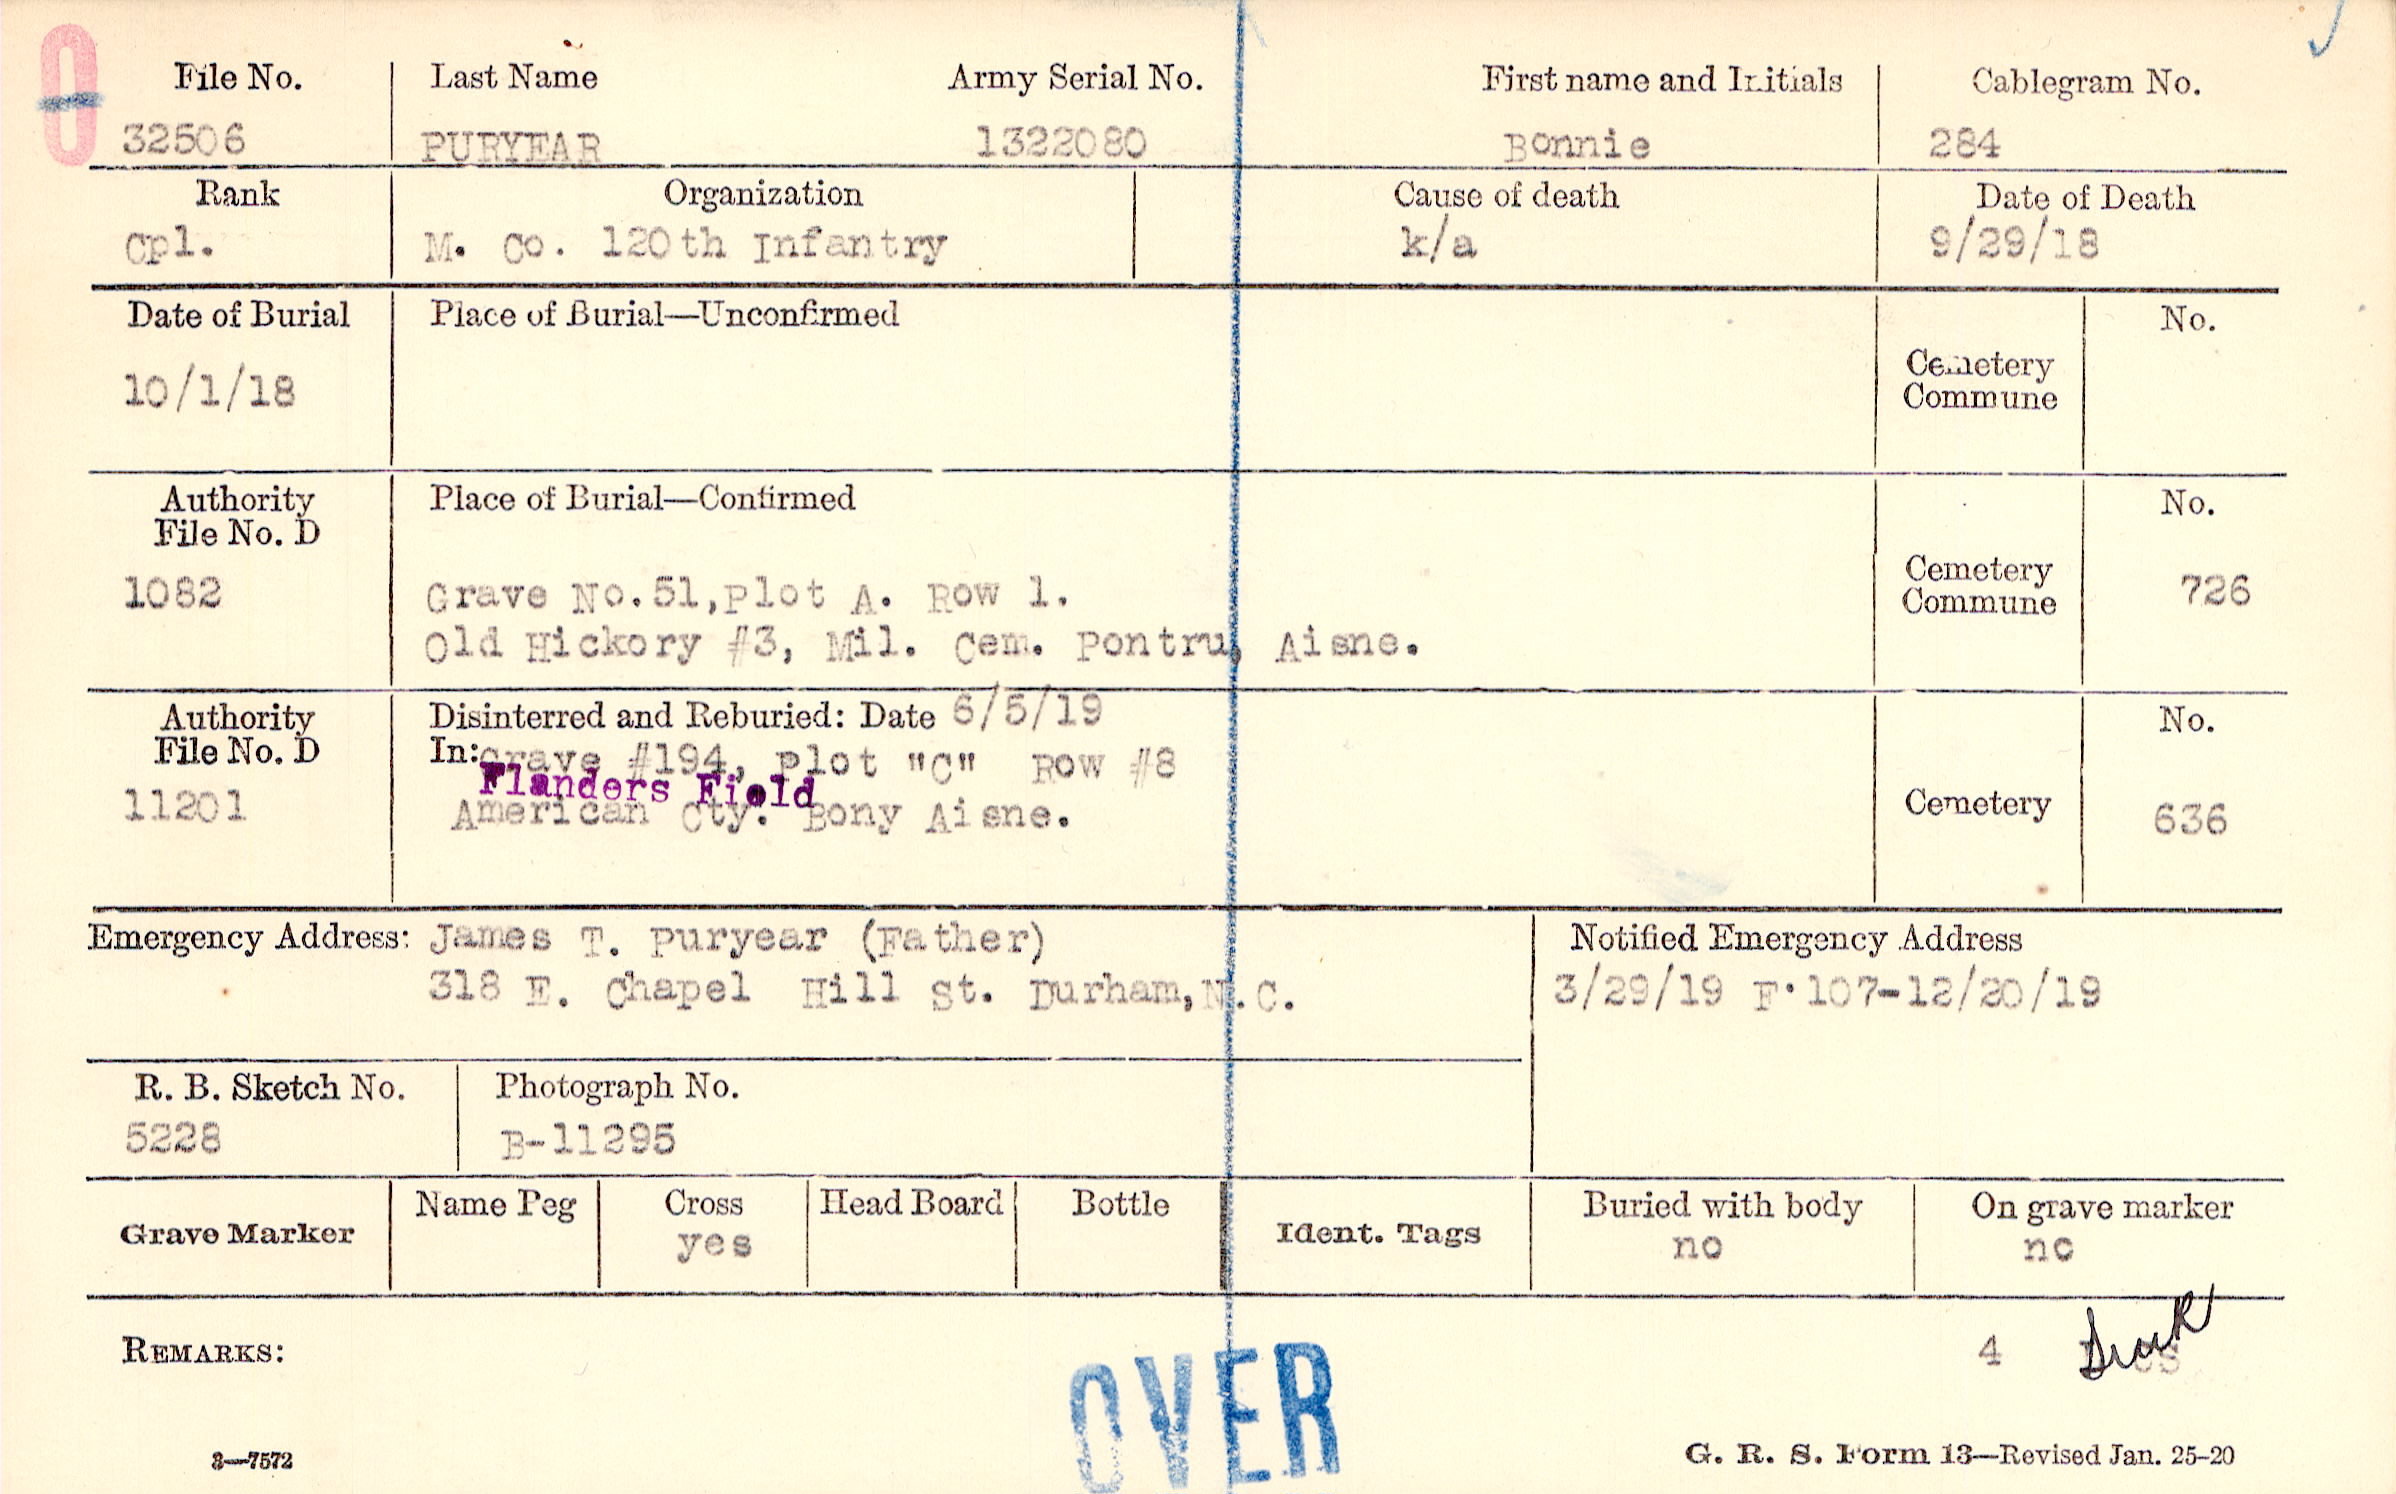 O
File No. Last Name Army Serial No. First name and Initials Cablegram No.
32506 PURYEAR 1322080 Bonnie 284
Rank Organization Cause of death Date of Death
Cpl. M. Co. 120th Infantry k/a 9/29/18
Date of Burial Place of Burial—Unconfirmed No.
10/1/18 Cemetery
Commune
Authority Place of Burial—Confirmed No.
File No. D
1082 Grave No.51,Plot A. Row 1. Cemetery
Commune 726
Old Hickory #3, Mil. Cem. Pontru, Aisne.
Authority Disinterred and Reburied: Date 6/5/19 No.
File No. D In: Grave #194, Plot "C" Row #8
Flanders Field
11201 American Cty. Bony Aisne. Cemetery 636
Emergency Address: James T. Puryear (Father) Notified Emergency Address
318 E. Chapel Hill St. Durham,N.C. 3/29/19 F.107-12/20/19
R. B. Sketch No. Photograph No.
5228 B-11295
Grave Marker Name Peg Cross Head Board Bottle Ident. Tags Buried with body On grave marker
yes no no
REMARKS: 4
OVER
3—7572 G. R. S. Form 13—Revised Jan. 25-20